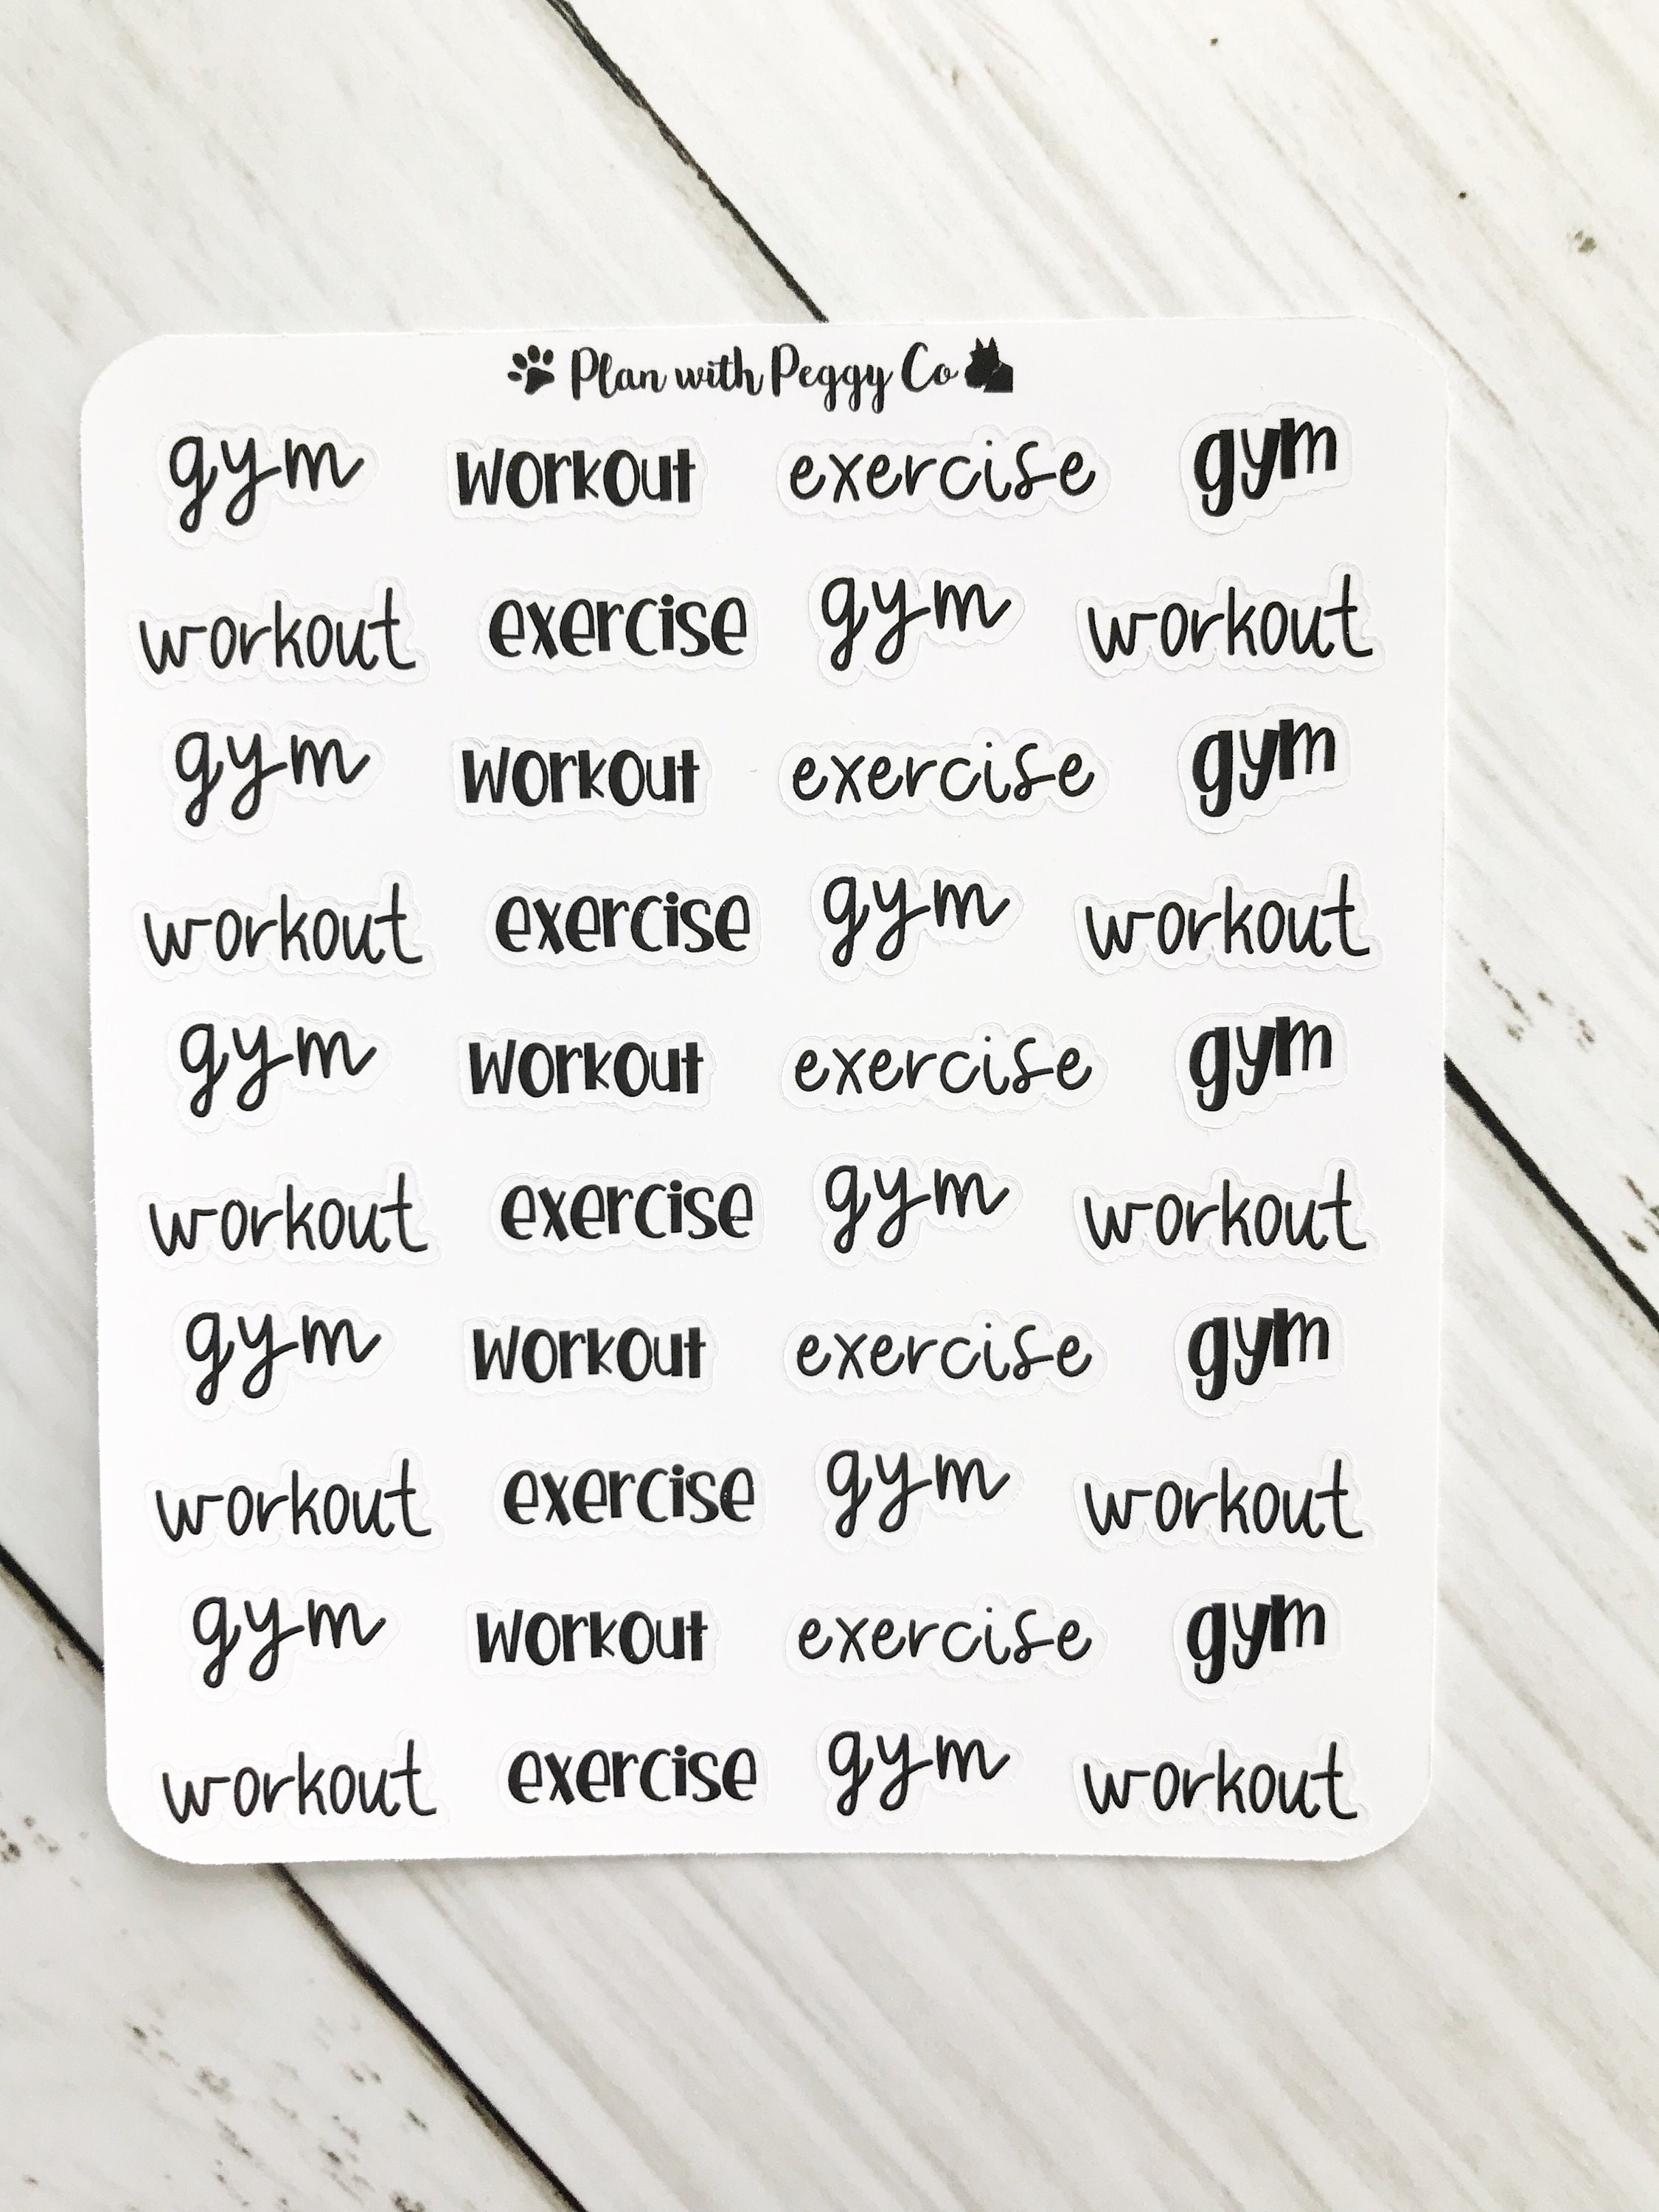 Plan with Peggy Co
gym workout exercise gym
workout exercise gym workout
gym workout exercise gym
workout exercise gym workout
gym workout exercise gym
workout exercise gym workout
gym workout exercise gym
workout exercise gym workout
gym workout exercise gym
workout exercise gym workout